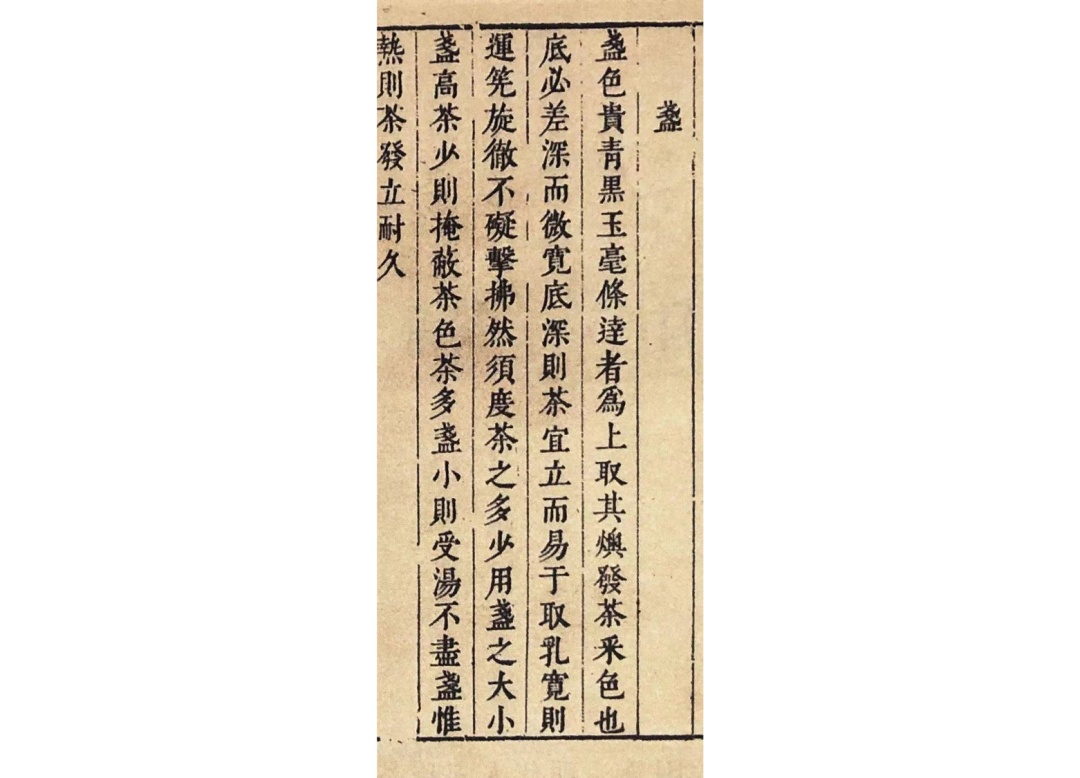 盞
盞色貴青黒玉毫條逹者爲上取其燠發茶采色也
底必差深而微寛底深則茶宜立而易于取乳寛則
運筅旋徹不礙擊拂然須度茶之多少用盞之大小
盞高茶少則掩蔽茶色茶多盞小則受湯不盡盞惟
熱則茶發立耐久